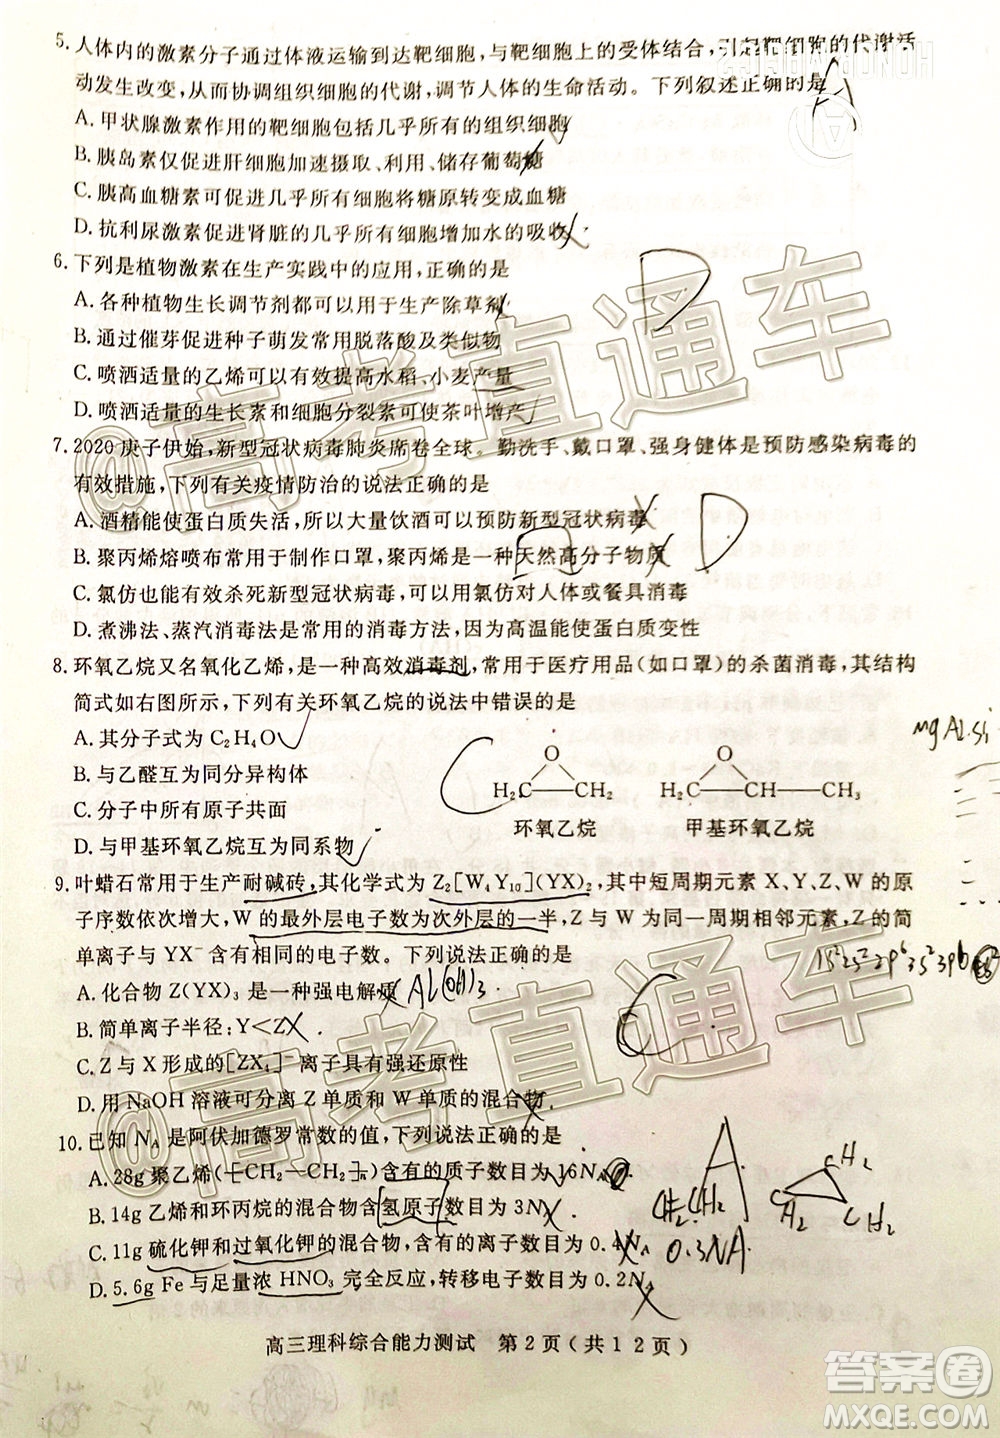 5. 人体内的激素分子通过体液运输到达靶细胞，与靶细胞上的受体结合，引起靶细胞的代谢活
动发生改变，从而协调组织细胞的代谢，调节人体的生命活动。下列叙述正确的是
A. 甲状腺激素作用的靶细胞包括几乎所有的组织细胞
B. 胰岛素仅促进肝细胞加速摄取、利用、储存葡萄糖
C. 胰高血糖素可促进几乎所有细胞将糖原转变成血糖
D. 抗利尿激素促进肾脏的几乎所有细胞增加水的吸收
6. 下列是植物激素在生产实践中的应用，正确的是
A. 各种植物生长调节剂都可以用于生产除草剂
B. 通过催芽促进种子萌发常用脱落酸及类似物
C. 喷洒适量的乙烯可以有效提高水稻、小麦产量
D. 喷洒适量的生长素和细胞分裂素可使茶叶增产
7. 2020庚子伊始，新型冠状病毒肺炎席卷全球。勤洗手、戴口罩、强身健体是预防感染病毒的
有效措施，下列有关疫情防治的说法正确的是
A. 酒精能使蛋白质失活，所以大量饮酒可以预防新型冠状病毒
B. 聚丙烯熔喷布常用于制作口罩，聚丙烯是一种天然高分子物质
C. 氯仿也能有效杀死新型冠状病毒，可以用氯仿对人体或餐具消毒
D. 煮沸法、蒸汽消毒法是常用的消毒方法，因为高温能使蛋白质变性
8. 环氧乙烷又名氧化乙烯，是一种高效消毒剂，常用于医疗用品（如口罩）的杀菌消毒，其结构
简式如右图所示，下列有关环氧乙烷的说法中错误的是
A. 其分子式为C₂H₄O
B. 与乙醛互为同分异构体
C. 分子中所有原子共面
D. 与甲基环氧乙烷互为同系物
O O
H₂C CH₂ H₂C CH CH₃
环氧乙烷 甲基环氧乙烷
9. 叶蜡石常用于生产耐碱砖，其化学式为Z₂[W₄Y₁₀](YX)₂，其中短周期元素X、Y、Z、W的原
子序数依次增大，W的最外层电子数为次外层的一半，Z与W为同一周期相邻元素，Z的简
单离子与YX⁻含有相同的电子数。下列说法正确的是
A. 化合物Z(YX)₃是一种强电解质
B. 简单离子半径：Y<Z
C. Z与X形成的[ZX₄]⁻离子具有强还原性
D. 用NaOH溶液可分离Z单质和W单质的混合物
10. 已知Nₐ是阿伏加德罗常数的值，下列说法正确的是
A. 28g聚乙烯(-[CH₂—CH₂]-ₙ)含有的质子数目为16Nₐ
B. 14g乙烯和环丙烷的混合物含氢原子数目为3Nₐ
C. 11g硫化钾和过氧化钾的混合物，含有的离子数目为0.4Nₐ
D. 5.6g Fe与足量浓HNO₃完全反应，转移电子数目为0.2Nₐ
高三理科综合能力测试 第2页（共12页）
A
D
D
C
C
A
Al(OH)₃
Mg Al Si
1s²2s²2p⁶3s²3p⁶
CH₂ CH₂
CH₂
CH₂ CH₂
0.3NA
@高考直通车
@高考直通车
答案圈
MXQE.COM